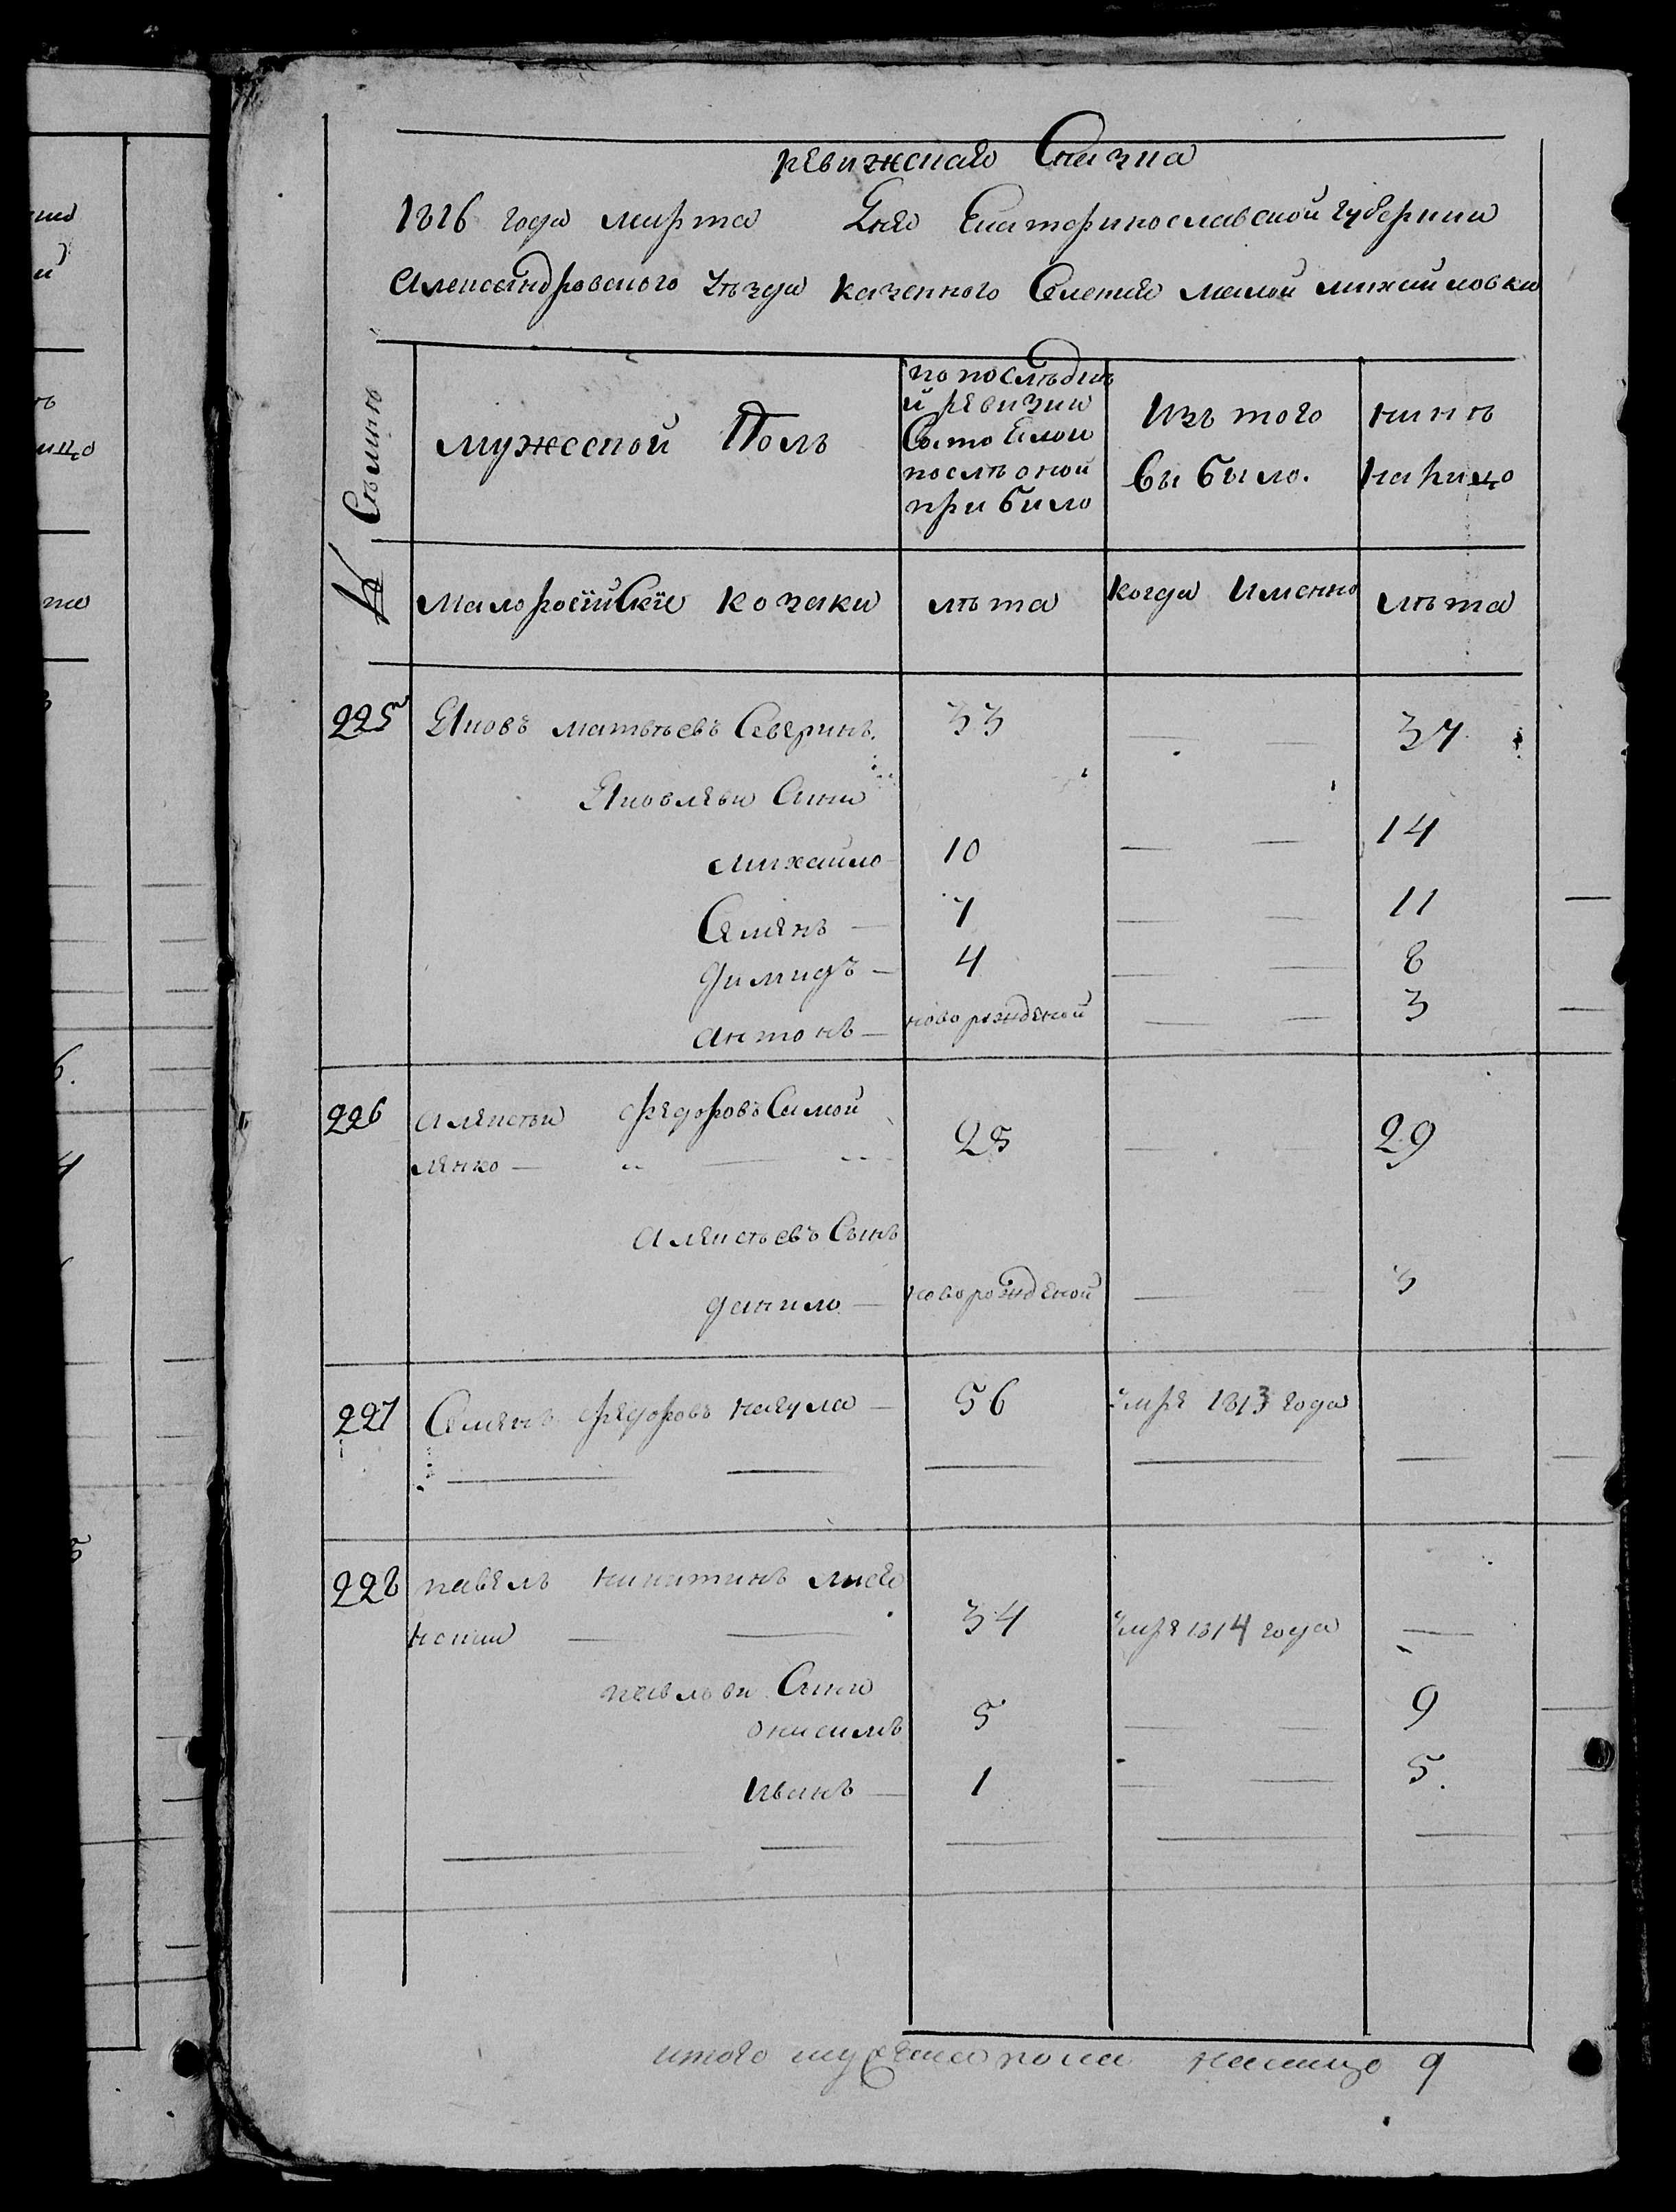 ревижская Сказка
1816 года марта Дня Екатеринославской губернии
Александровского уѣзда казенного Селения малой михайловки
№ Съмиѣ
мужеской Полъ
по послѣдне
й ревизии
Состояло и
послѣ оной
прибило
Изъ того
выбыло.
нинѣ
налицо
Малоросїйскїе козаки лѣта когда Именно лѣта
225 Яковъ матвѣевъ Северинъ. 33 — — 37
Яковлеви Сини
михайло 10 — — 14
Семенъ — 7 — — 11
димидъ — 4 — — 8
антонъ — новорожденой — — 3
226 алексѣи федоровъ Самой
ленко — 25 — — 29
алексѣевъ Сынъ
данило — новорожденой — — 3
227 Семенъ федоровъ накула — 56 умре 1813 года
228 павелъ никитинъ лися
нски — — 34 умре 1814 года —
павлови Сыни
онисимъ 5 — — 9
Иванъ — 1 — — 5.
итого мужеска пола налицо 9